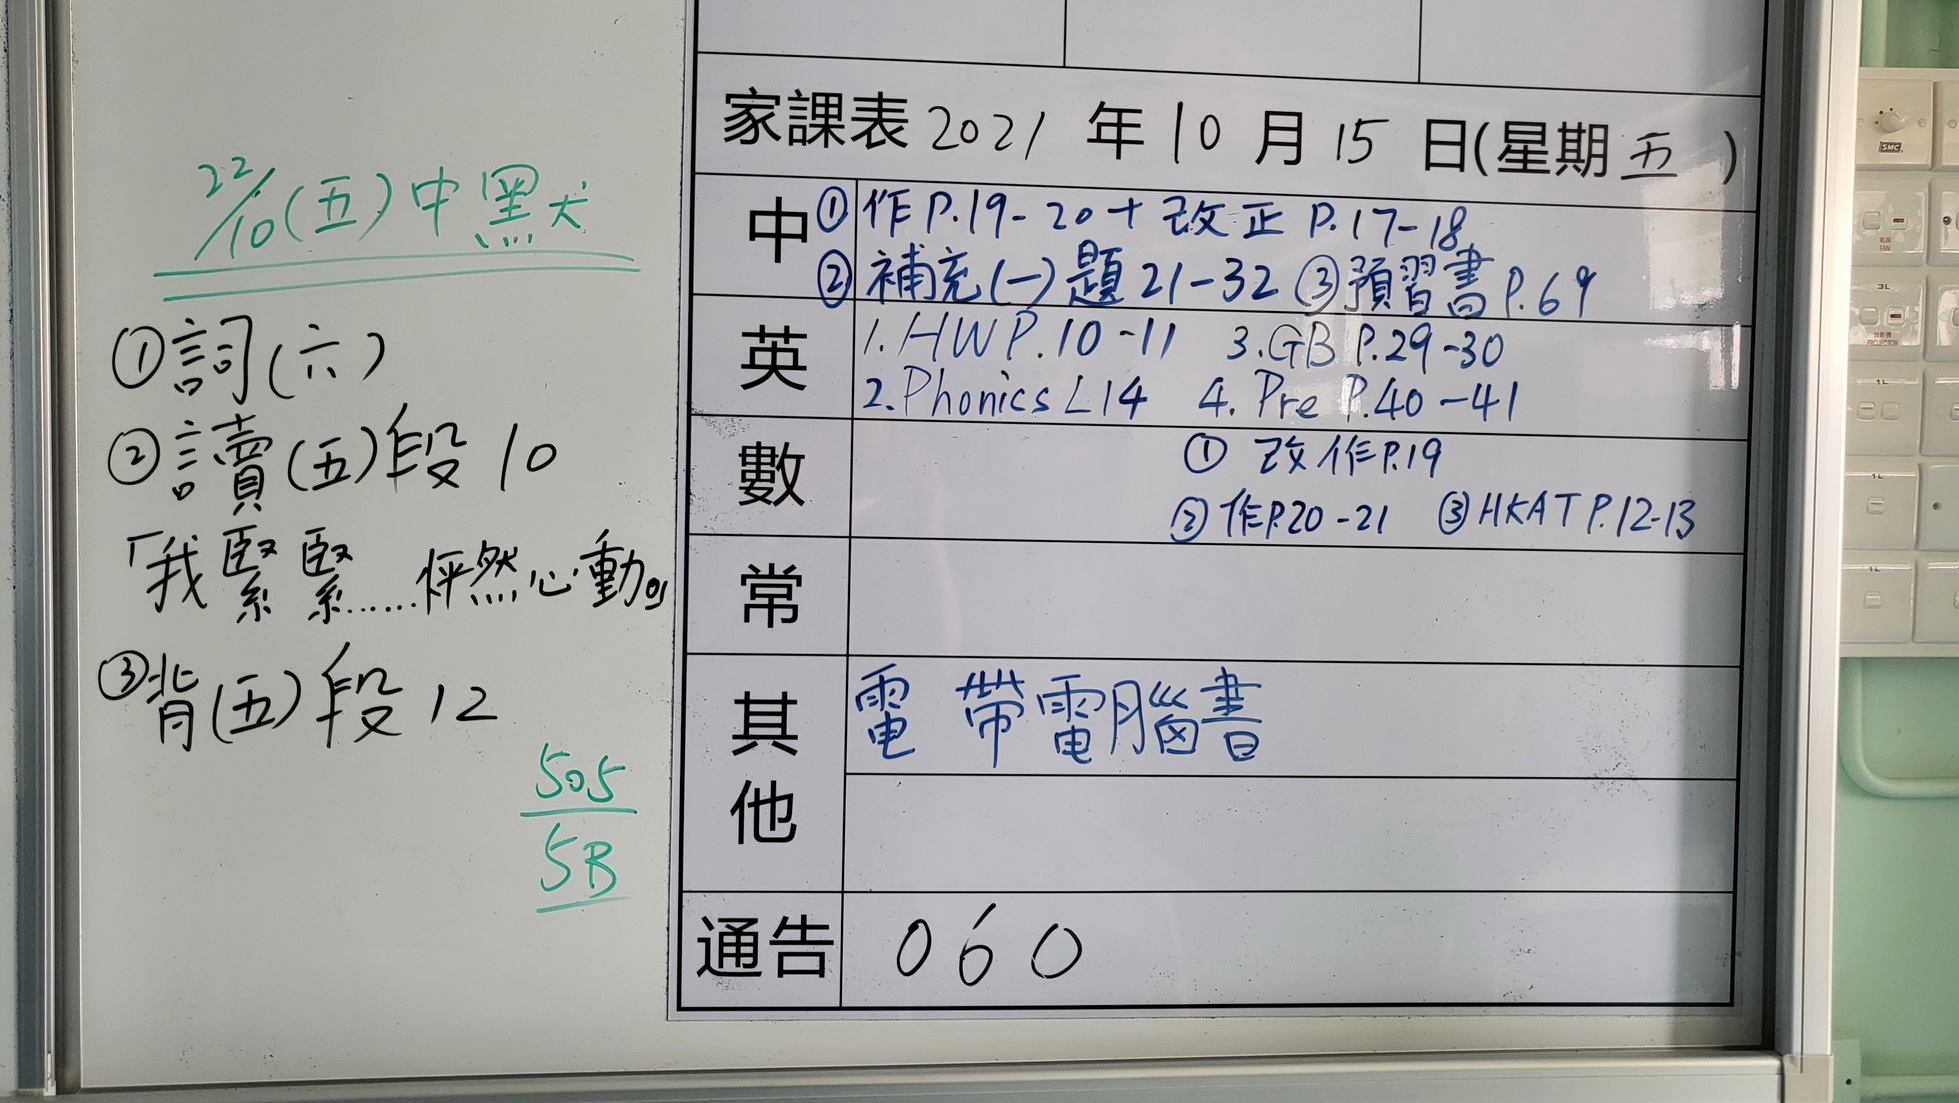 22/10(五)中默
①詞(六)
②讀(五)段10
「我緊緊......怦然心動。」
③背(五)段12
505
5B
家課表2021年10月15日(星期五)
中
①作P.19-20+改正P.17-18
②補充(一)題21-32 ③預習書P.69
英
1.HWP.10-11 3.GB P.29-30
2.Phonics L14 4. Pre P.40-41
數
① 改作P.19
②作P.20-21 ③HKAT P.12-13
常
其他
電 帶電腦書
通告
060
SMC
風扇
FAN
3L
投影機
PROJECTOR
1L
1L
1L